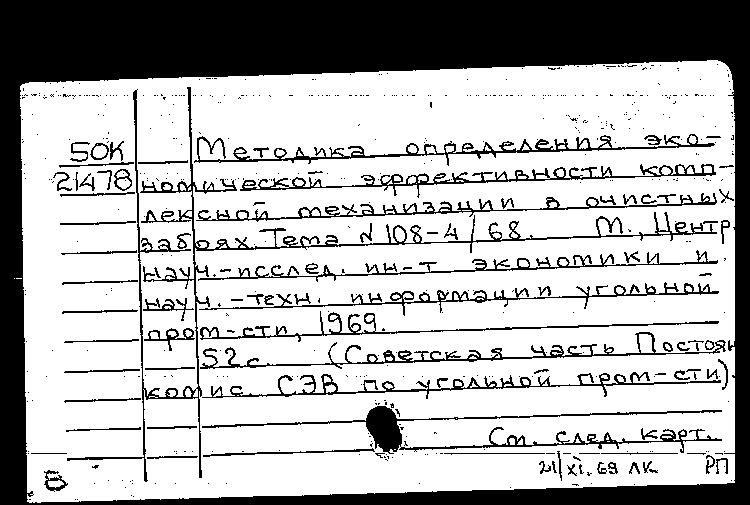 50К Методика определения эко-
21478 номической эффективности комп-
лексной механизации в очистных
забоях. Тема N 108-4/68. М., Центр.
науч.-исслед. ин-т экономики и
науч.-техн. информации угольной
пром-сти, 1969.
52с. (Советская часть Постоян
комис. СЭВ по угольной пром-сти).
См. след. карт.
21/XI.69 ЛК РП
В